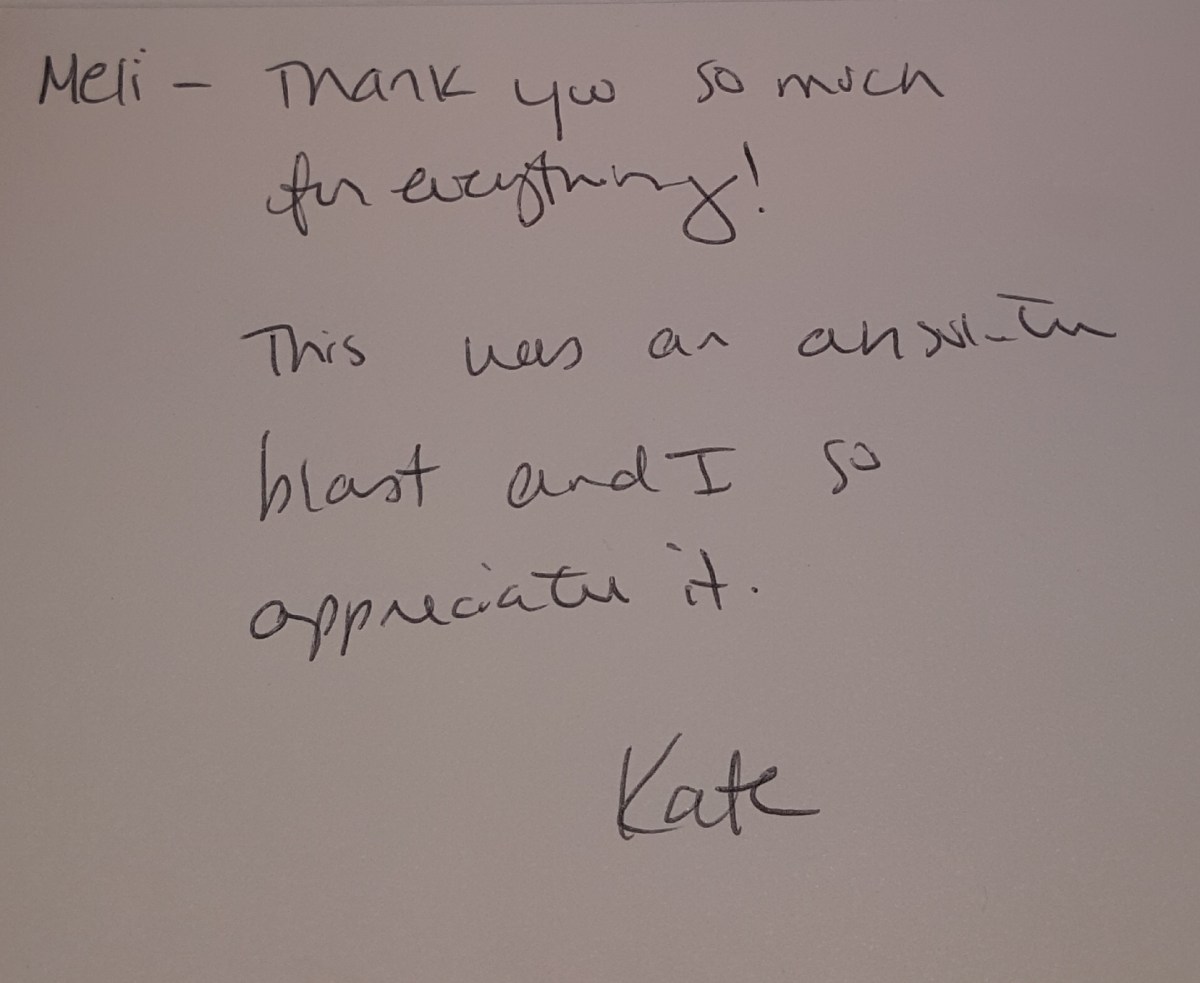 Meli - Thank you so much
for everything!
This was an
blast and I so
appreciate it.
Kate